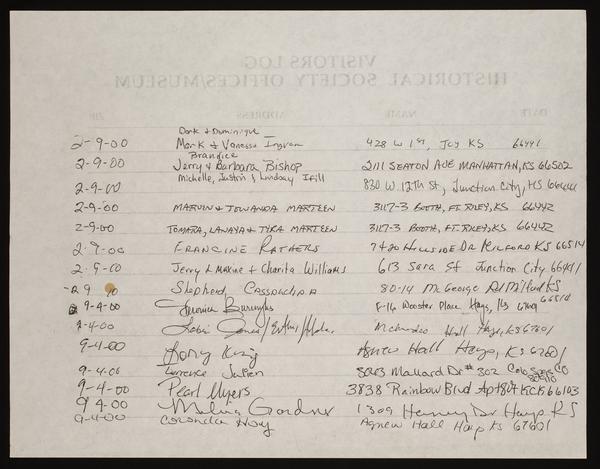 VISITORS LOG
HISTORICAL SOCIETY OFFICES/MUSEUM
DATE NAME ADDRESS ZIP
Dark & Dominique
2-9-00 Mark & Vanessa Ingram 428 W 1st, Jcy KS 66441
Brandice
2-9-00 Jerry & Barbara Bishop 2111 SEATON AVE MANHATTAN, KS 66502
Michelle, Justin & Lindsay Ifill
2-9-00 830 W. 12th St, Junction City, KS 66441
2-9-00 MARVIN & TOWANDA MARTEEN 3117-3 BOOTH, FT. RILEY, KS 66442
2-9-00 TOMARA, LANAYA & TYRA MARTEEN 3117-3 BOOTH, FT. RILEY, KS 66442
2-9-00 FRANCINE 7420 HILLSIDE DR MILFORD KS 66514
2-9-00 Jerry & Maxine & Charita Williams 613 Sara St Junction City 66441
2 9 00 Shepherd 80-14 McGeorge Rd Milford KS 66514
9-4-00 Veronica Burroughs 8-16 Wooster Place Hays, Ks 67601
9-4-00 Hall Hays, KS 67601
9-4-00 King Agnew Hall Hays, Ks 67601
9-4-00 Lawrence Julien Mallard Dr # 302 Colo Spgs CO
9-4-00 Pearl Myers 3838 Rainbow Blvd Apt 804 KCK 66103
9 4-00 Gardner 1309 Henry Dr Hays KS
9-4-00 Agnew Hall Hays Ks 67601